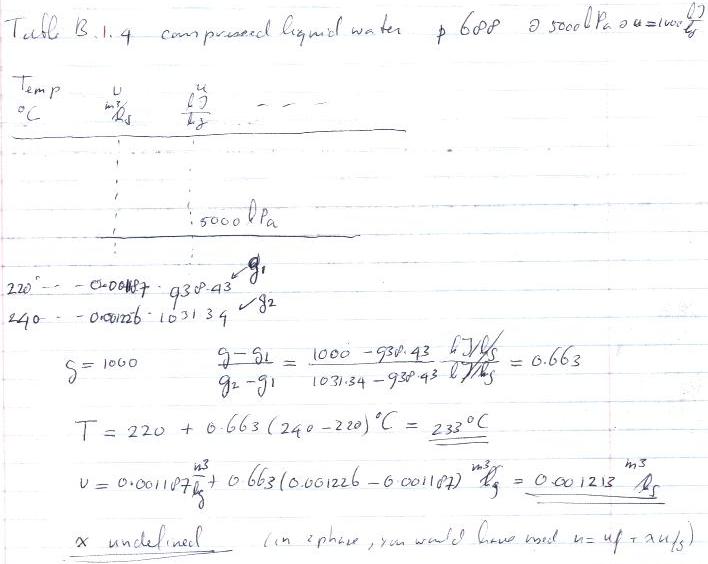 Table B.1.4 compressed liquid water p 688 @ 5000 kPa @ u=1000 kJ/kg
Temp °C υ m³/kg u kJ/kg - - -
5000 kPa
220° - - - 0.001187 · 938.43 ↙ g₁
240 - - - 0.001226 - 1031 34 ↙ g₂
g = 1000 (g-g₁)/(g₂-g₁) = (1000 - 938.43)/(1031.34 - 938.43) (kJ/kg)/(kJ/kg) = 0.663
T = 220 + 0.663 (240-220) °C = 233°C
υ = 0.001187 m³/kg + 0.663 (0.001226 - 0.001187) m³/kg = 0.001213 m³/kg
x undefined (in 2phase, you would have used u = uf + x ufg)